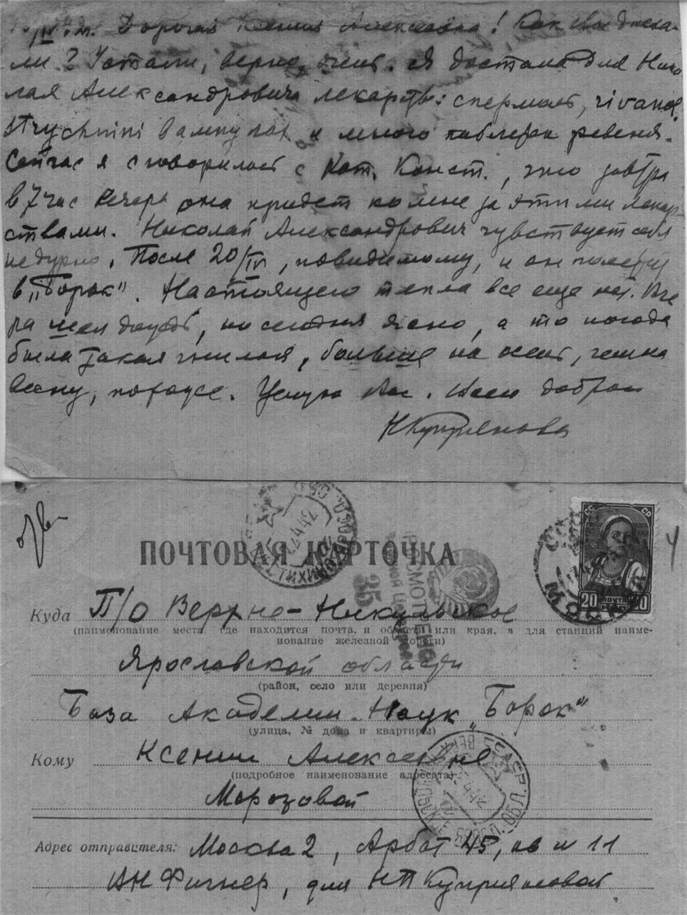 /IV. м. Дорогая Ксения Алексеевна! Как Вы доеха-
ли? Устали, верно, очень. Я достала для Нико-
лая Александровича лекарств: rivanol,
strychnini в ампулах и много таблеток ревеня.
Сейчас я сговорилась с Кат. Конст., что завтра
в 7 час вечера она придет ко мне за этими лекар-
ствами. Николай Александрович чувствует себя
недурно. После 20/IV, повидимому, и он поедет
в „Борок“. Настоящего тепла все еще нет. Вче
ра шел дождь, но сегодня ясно, а то погода
была такая гнилая, больше на осень, чем на
весну, похоже. Целую Вас. Всего доброго
НКуприянова
ПОЧТОВАЯ КАРТОЧКА
ПРОСМОТРЕНО
МОСКВА
20 ПОЧТА 20
Куда П/о Верхне-Никульское
(наименование места, где находится почта, и области или края, а для станций наиме-
нование железной дороги)
Ярославской области
(район, село или деревня)
База Академии Наук „Борок“
(улица, № дома и квартиры)
Кому Ксении Алексеевне
(подробное наименование адресата)
Морозовой
Адрес отправителя: Москва 2, Арбат 45, кв 11
Фигнер, для НП Куприяновой